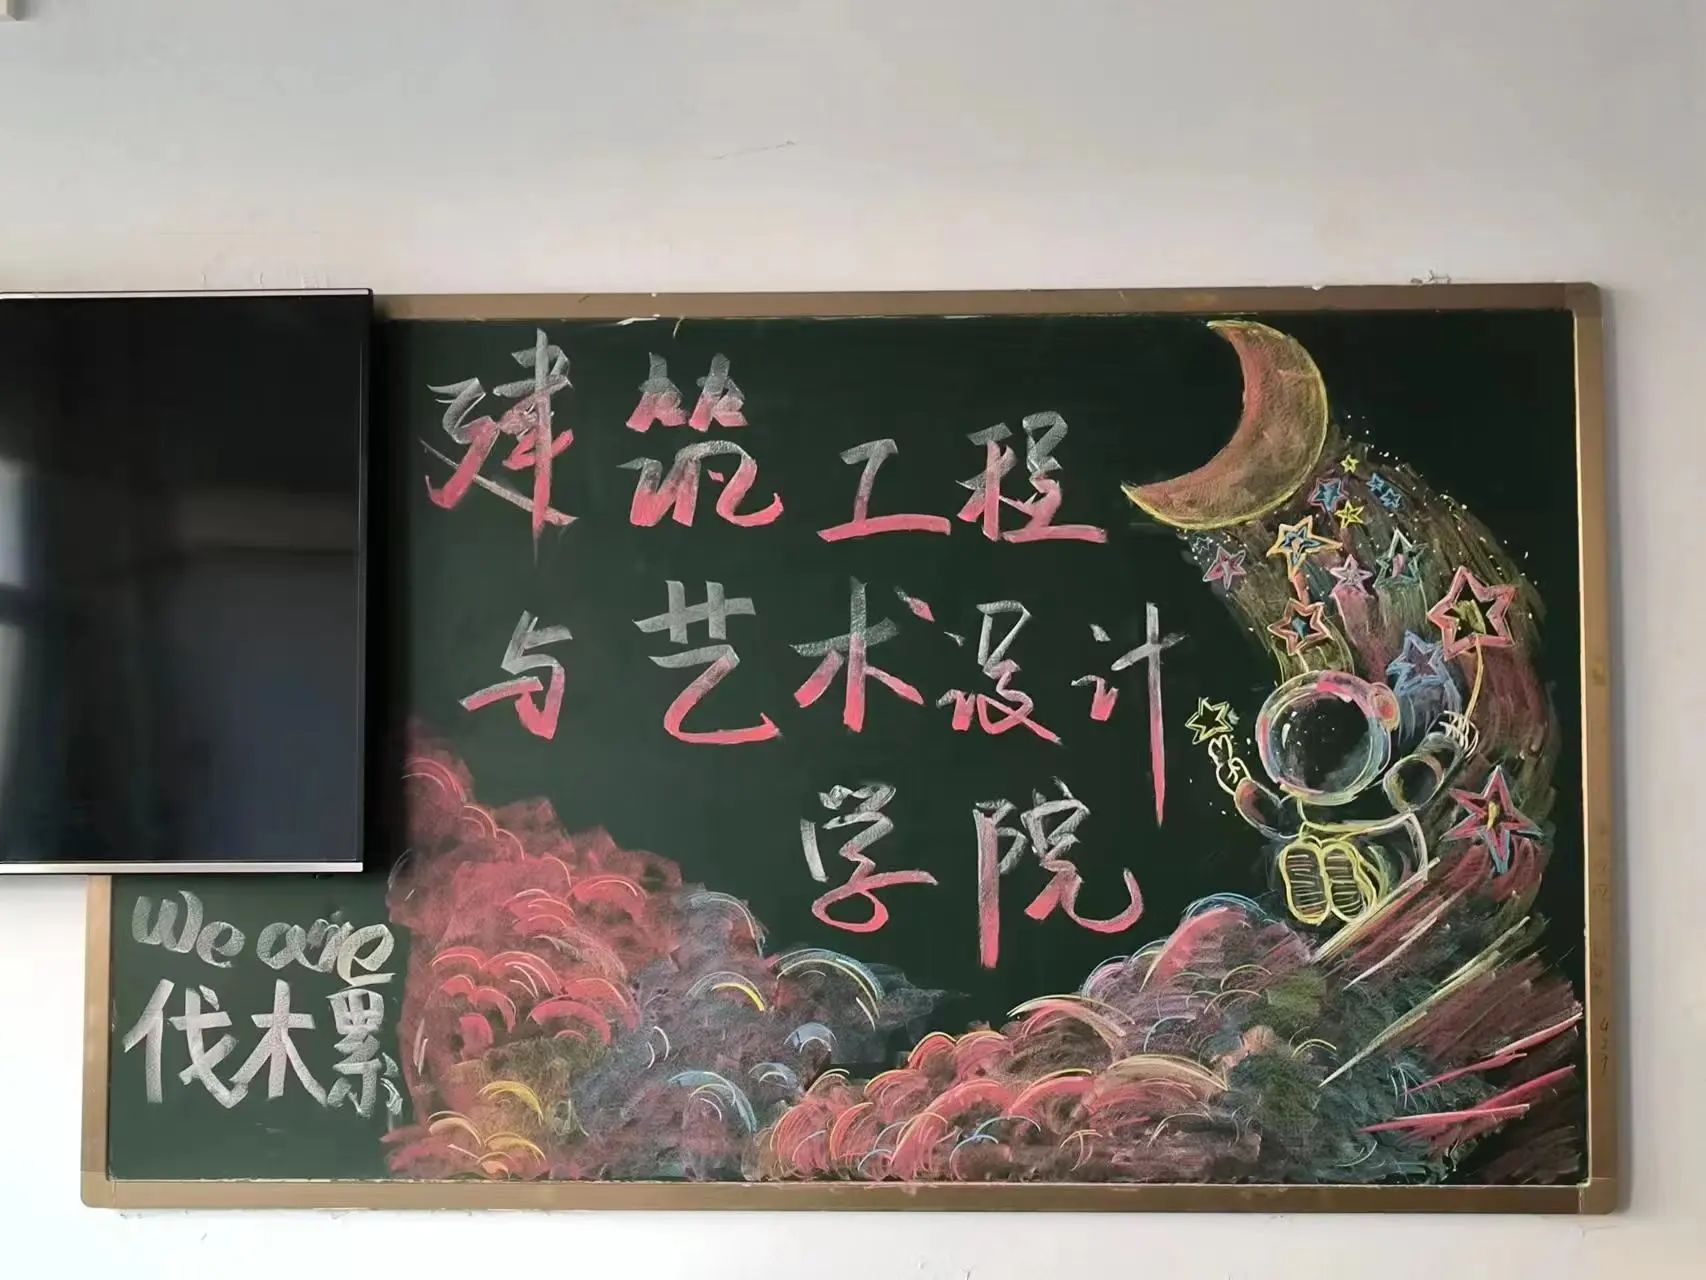 建筑工程
与艺术设计
学院
We are
伐木累